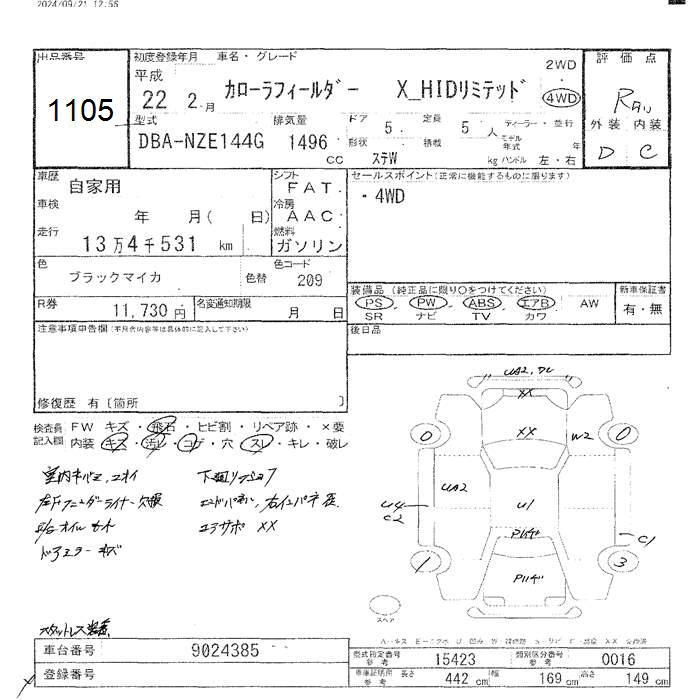 2024/09/21 12:56
出品番号
1105
初度登録年月 車名・グレード
平成
22 2.月
カローラフィールダー X_HIDリミテッド
2WD
・
4WD
評価点
R
外装 内装
D C
型式 排気量
DBA-NZE144G 1496 cc
ドア 5. 定員 5 人
ディーラー・並行
形状 ステW 積載 kg
モデル年式 年
ハンドル 左・右
車歴 自家用
車検 年 月( 日)
走行 13万4千531 km
シフト FAT.
冷房 AAC.
燃料 ガソリン
セールスポイント(正常に機能するものに限ります)
・4WD
色 ブラックマイカ 色替
色コード 209
R券 11,730 円
名変通知期限 月 日
装備品 (純正品に限り○をつけてください)
PS PW ABS エアB AW
SR ナビ TV カワ
新車保証書
有・無
後日品
注意事項申告欄(不具合内容等は具体的に記入して下さい)
修復歴 有〔箇所 〕
検査員記入欄
FW キズ・飛石・ヒビ割・リペア跡・×要
内装 キズ・汚レ・コゲ・穴・スレ・キレ・破レ
左Fフェンダーライナー欠損
ドアミラー キズ
コアサポ XX
UA2,
XX
XX
0 0
W2
UA2
U4
C2
U1
C1
1 3
スペア
スタットレス装着
車台番号 9024385
登録番号
型式指定番号 参考 15423
類別区分番号 参考 0016
車庫証明用 参考 長さ 442 cm 幅 169 cm 高さ 149 cm